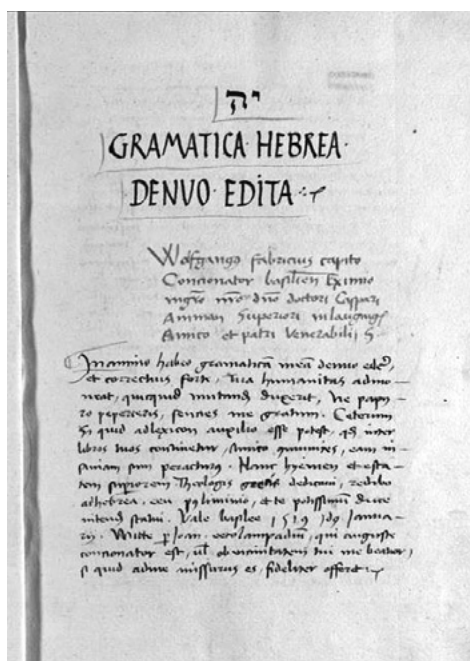 יה
GRAMATICA · HEBREA ·
DENVO · EDITA
Wolfgangus fabricius capito
Concionator basilien Eximio
mgro nro dno doctori Caspari
Amman Superiori
Amico et patri Venerabili, S
In animo habeo gramaticā meā denuo
et correctius forte, Tua humanitas admo-
neat, quicquid mutandū duxerit, Ne papy-
ro peperceris, senties me gratum. Ceterum
Si quid adlexicon auxilio esse potest, qđ inter
libros tuos continetur, Amico eam
sum peracturus. Hanc hyemen et esta-
tem superiorem Theologis grecis dedicaui, redibo
adhebrea, ceu et te potissimū duce
nitendū statui. Vale basilee 1519 Janua-
rij. Mitte p Joan. oecolampadiū, qui auguste
concionator est, ob vicinitatem tui me
si quid adme missurus es, fideliter offeret